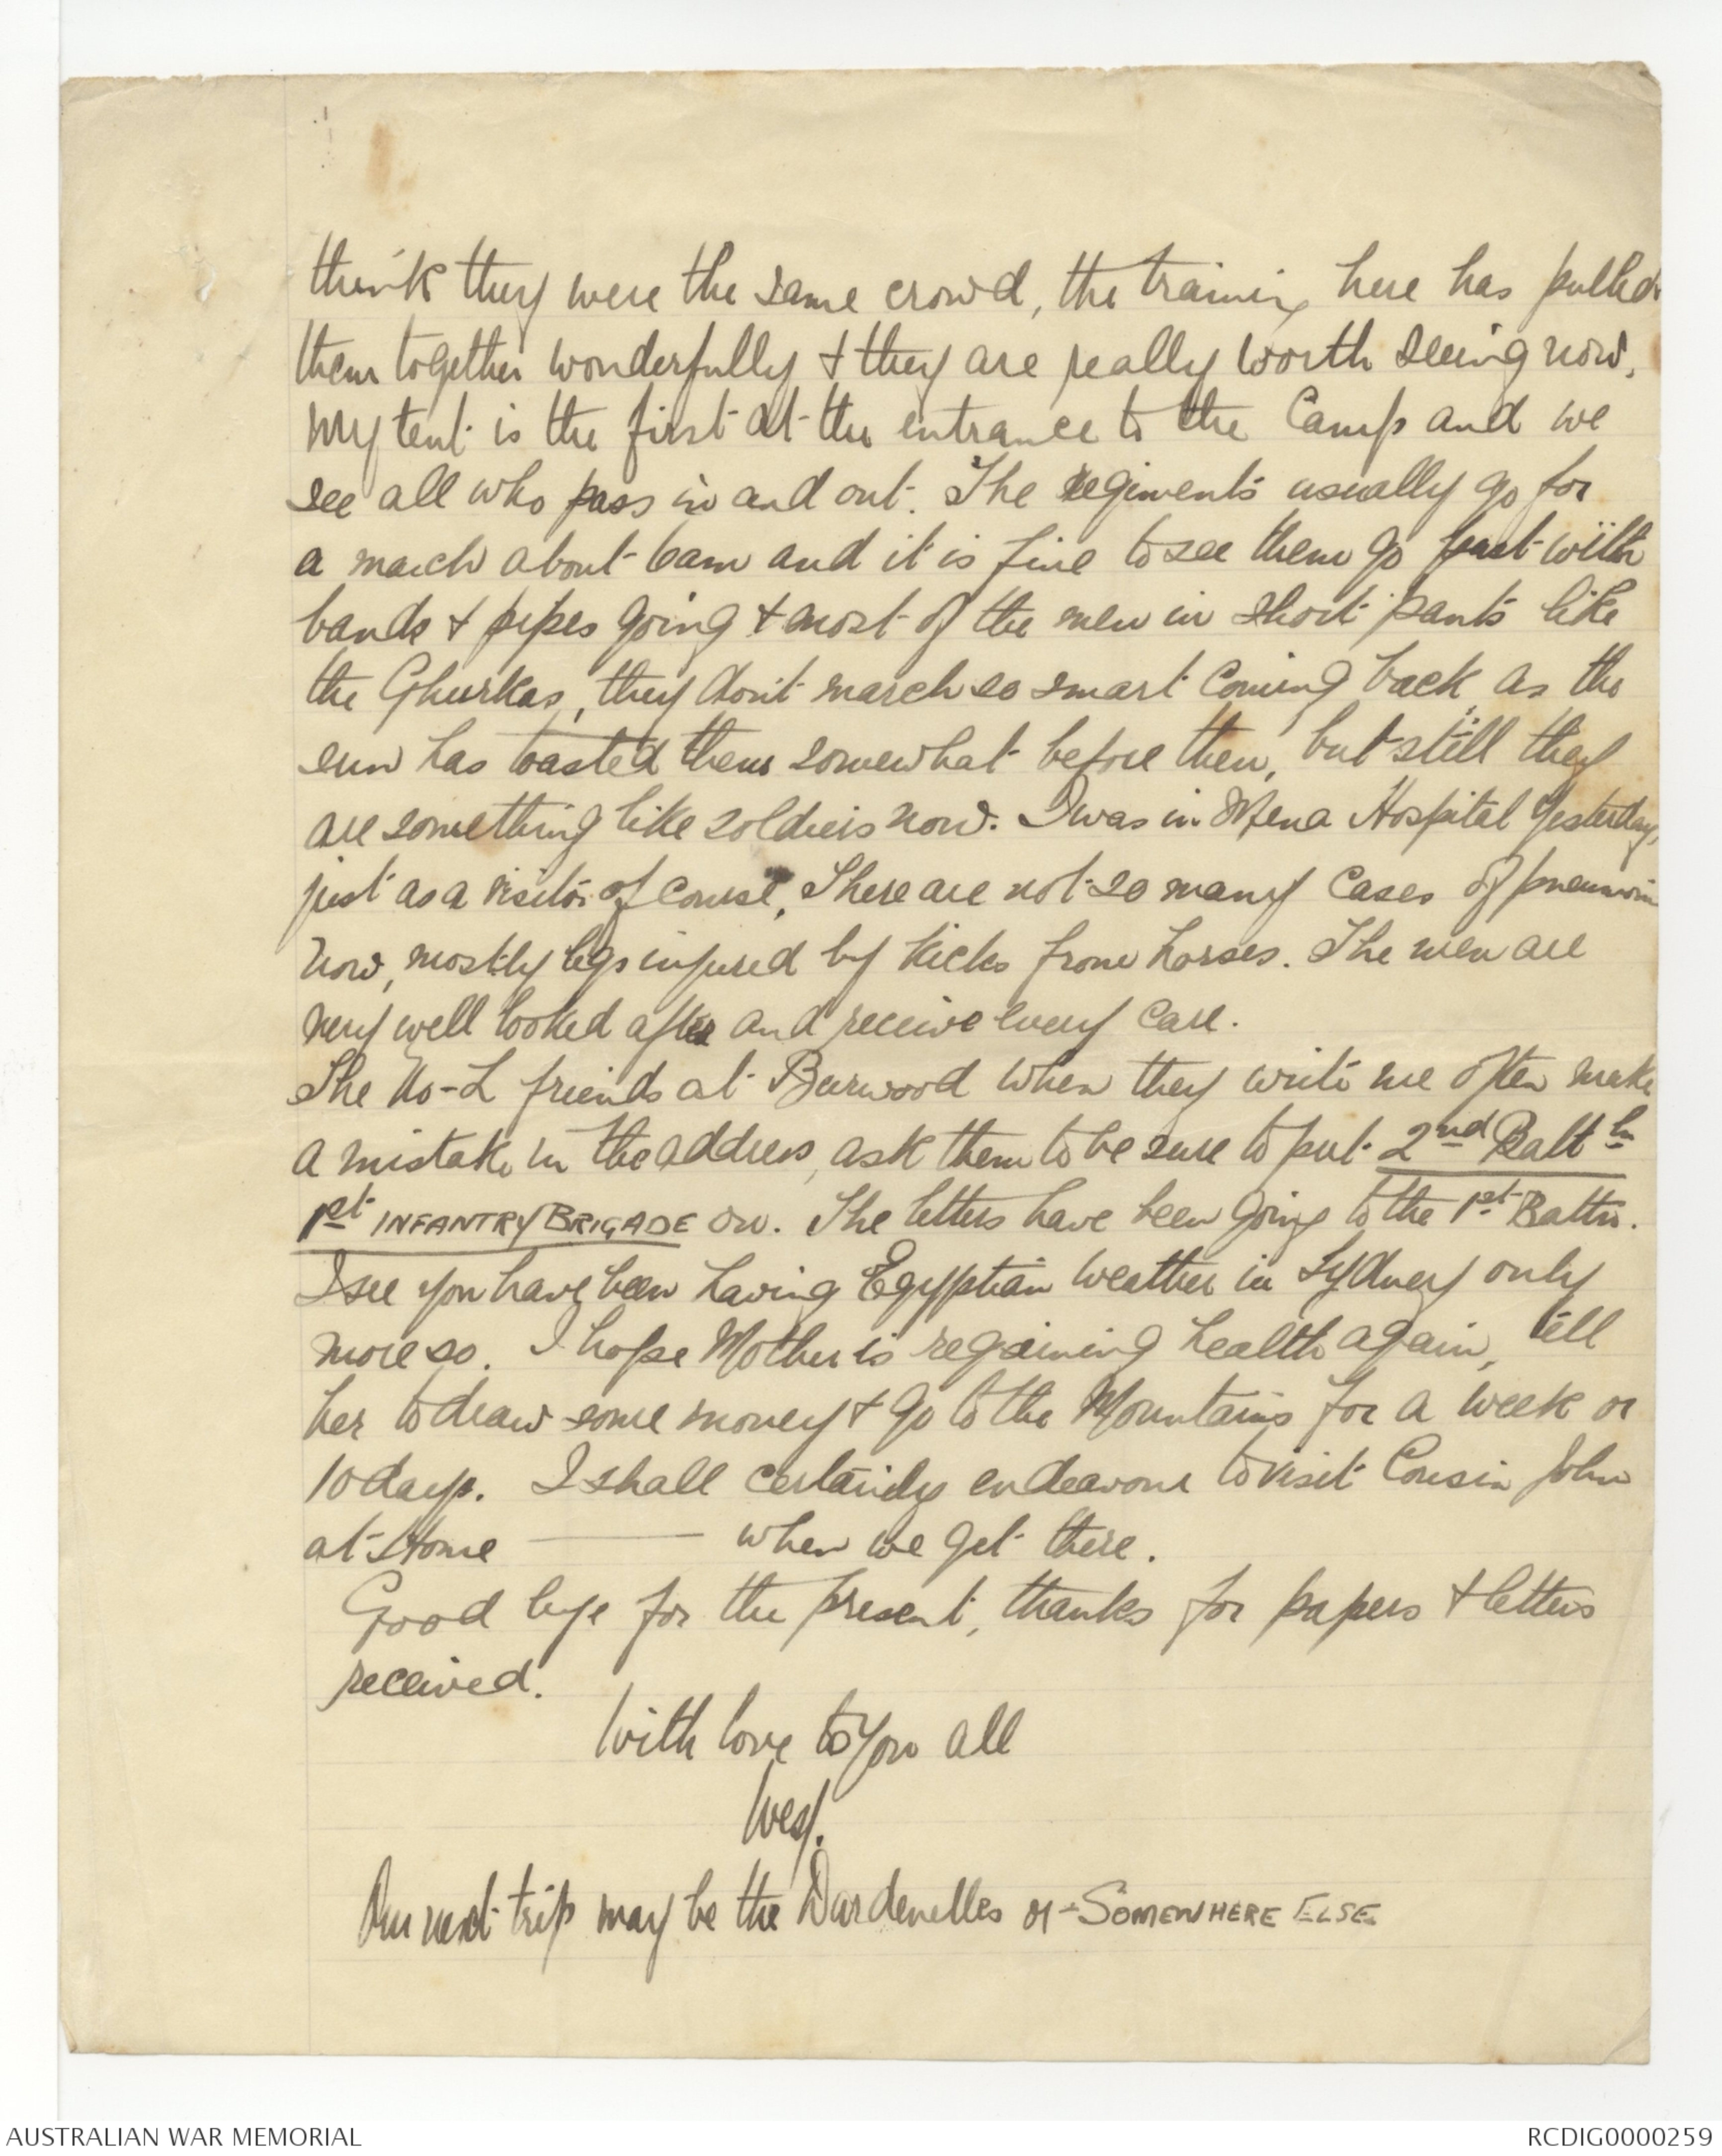 think they were the same crowd, the training here has pulled
them together wonderfully & they are really worth seeing now,
My tent is the first at the entrance to the Camp and we
see all who pass in and out. The regiments usually go for
a march about 6am and it is fine to see them go past with
bands & pipes going & most of the men in short pants like
the Ghurkas, they don't march so smart coming back as the
sun has toasted them somewhat before then, but still they
are something like soldiers now. I was in Mena Hospital yesterday,
just as a visitor of course, There are not so many cases of pneumonia
now, mostly legs injured by kicks from horses. The men are
very well looked after and receive every care.
The No-L friends at Burwood when they write me often make
a mistake in the address, ask them to be sure to put 2nd Batt ln
1st INFANTRY BRIGADE on. The letters have been going to the 1st Battn.
I see you have been having Egyptian weather in Sydney only
more so. I hope Mother is regaining health again, tell
her to draw some money & go to the Mountains for a week or
10 days. I shall certainly endeavour to visit Cousin John
at Home ——— when we get there.
Good bye for the present, thanks for papers & letters
received.
With love to you all
Wes.
Our next trip may be the Dardenelles or - SOMEWHERE ELSE
AUSTRALIAN WAR MEMORIAL
RCDIG0000259